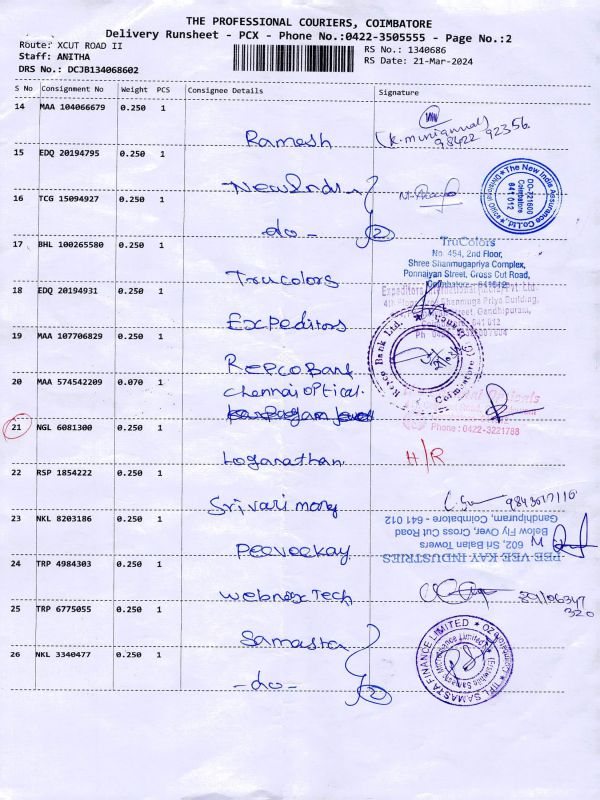 THE PROFESSIONAL COURIERS, COIMBATORE
Delivery Runsheet - PCX - Phone No.:0422-3505555 - Page No.:2
Route: XCUT ROAD II
Staff: ANITHA
DRS No.: DCJB134068602
RS No.: 1340686
RS Date: 21-Mar-2024
S No Consignment No Weight PCS Consignee Details Signature
14 MAA 104066679 0.250 1
Ramesh
98422 92356
15 EDQ 20194795 0.250 1
New Indi
The New India Assurance Co.Ltd.
DO-721600
Coimbatore
641 012
16 TCG 15094927 0.250 1
-do- 2
17 BHL 100265580 0.250 1
Trucolors
TruColors
No. 454, 2nd Floor,
Shree Shanmugapriya Complex,
Ponnaiyan Street, Cross Cut Road,
Coimbatore - 641012
18 EDQ 20194931 0.250 1
Expeditors
Expeditors International (India) Pvt. Ltd.
4th Floor, Shanmuga Priya Building,
Street Gandhipuram,
19 MAA 107706829 0.250 1
Repco Bank
Repco Bank Ltd.
Coimbatore
20 MAA 574542209 0.070 1
Chennai optical
Phone : 0422-3221788
21 NGL 6081300 0.250 1
Loganathan
H/R
22 RSP 1854222 0.250 1
Srivari
23 NKL 8203186 0.250 1
Peeveekay
PEE VEE KAY INDUSTRIES
602, Sri Balan Towers
Below Fly Over, Cross Cut Road
Gandhipuram, Coimbatore - 641 012
24 TRP 4984303 0.250 1
Tech
25 TRP 6775055 0.250 1
Samasta
SAMASTA FINANCE LIMITED
26 NKL 3340477 0.250 1
-do- 2